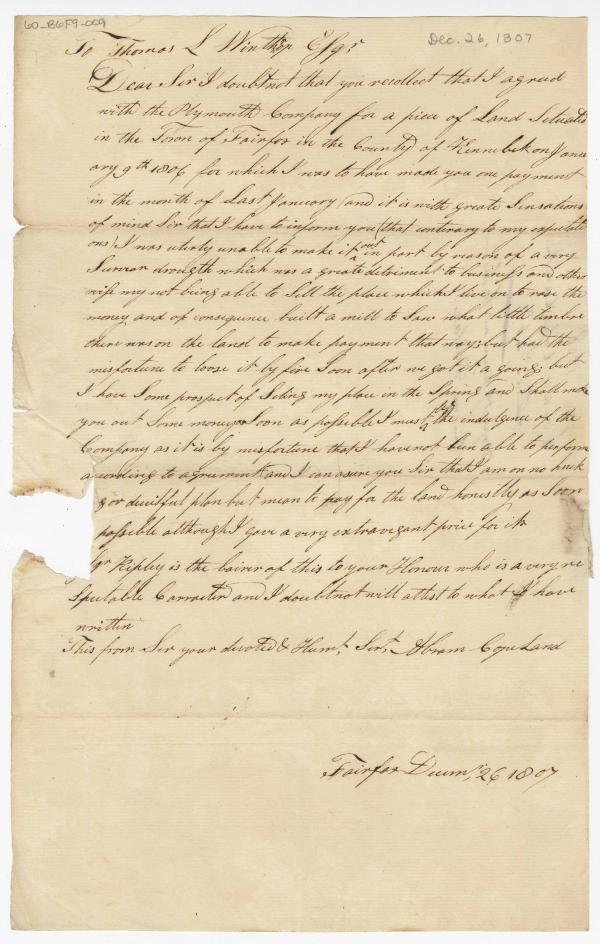 60-B6F9-009
Dec. 26, 1807
To Thomas L Winthrop Esqr
Dear Sir I doubt not that you recollect that I agreed
with the Plymouth Company for a piece of Land Situated
in the Town of Fairfax in the County of Kennebek on Janu
ary 9th 1806 for which I was to have made you one payment
in the month of Last January and it is with greate Sensations
of mind Sir that I have to inform you (that contrary to my expectati
ons) I was uterly unable to make it out in part by reason of a very
drougth which was a greate detriment to business and other
wise my not being able to Sell the place which I live on to rase the
money and of consequence built a mill to Saw what little timbre
there was on the land to make payment that way; but had the
misfortune to loose it by fire Soon after we got it a going; but
I have Some prospect of Seling my place in the Spring and Shall make
you out Some money as Soon as possible I must the indulgence of the
Company as it is by misfortune that I have not ben able to perform
acording to agreement and I can asure you Sir that I am on no
or deceitful plan but mean to pay for the land honestly as Soon
possible although I gave a very extravegant price for it
Mr Ripley is the bairer of this to your Honour who is a very re
Spectable Carracter and I doubt not will attest to what I have
written
This from Sir your devoted & Humt. Sert. Abram Copeland
Fairfax Decmr. 26 1807